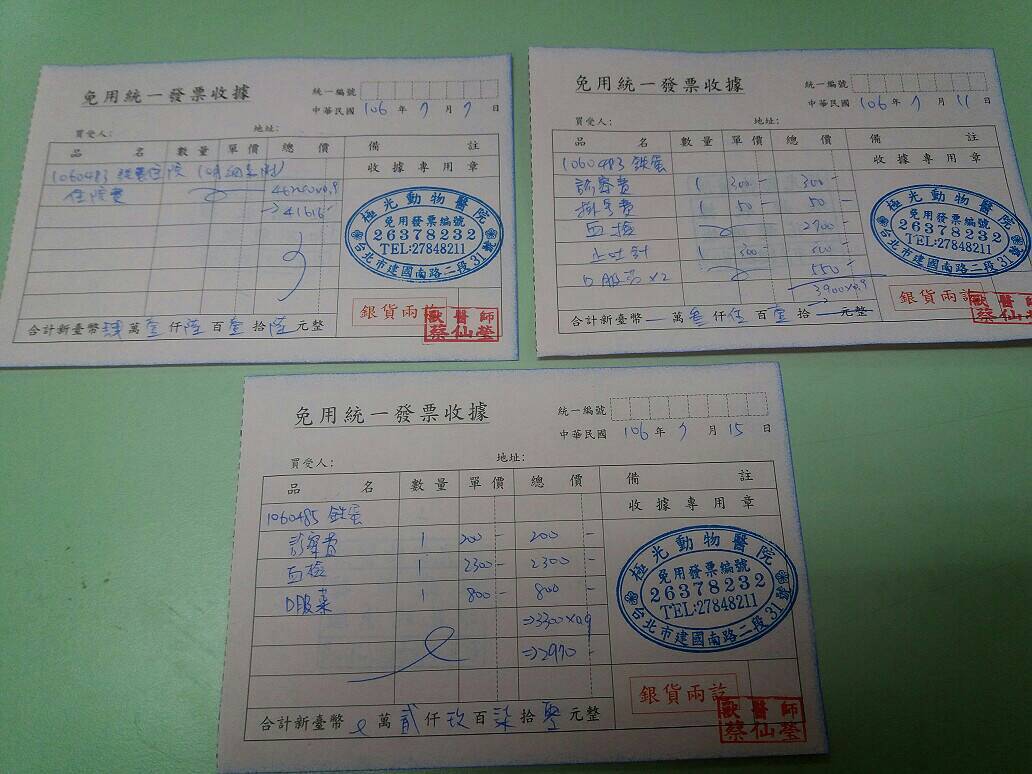 免用統一發票收據
統一編號
中華民國 106 年 7 月 7 日
買受人： 地址：
品 名 數量 單價 總 價 備 註
收據專用章
1060483
住院費
→41616-
極光動物醫院
免用發票編號
26378232
TEL:27848211
台北市建國南路二段31號
銀貨兩訖
合計新臺幣 肆 萬 壹 仟 陸 百 壹 拾 陸 元整
獸醫師
蔡仙瑩
免用統一發票收據
統一編號
中華民國 106 年 7 月 11 日
買受人： 地址：
品 名 數量 單價 總 價 備 註
收據專用章
1060483 鐵蛋
診察費 1 300- 300-
掛号費 1 50- 50-
血檢 2700-
止吐針 1 500-
口服藥x2 550-
3900x0.9
極光動物醫院
免用發票編號
26378232
TEL:27848211
台北市建國南路二段31號
銀貨兩訖
合計新臺幣 萬 叁 仟 伍 百 壹 拾 元整
獸醫師
蔡仙瑩
免用統一發票收據
統一編號
中華民國 106 年 7 月 15 日
買受人： 地址：
品 名 數量 單價 總 價 備 註
收據專用章
1060485 鐵蛋
診察費 1 200- 200-
血檢 1 2300- 2300-
口服藥 1 800- 800-
⇒3300x0.9
⇒2970-
極光動物醫院
免用發票編號
26378232
TEL:27848211
台北市建國南路二段31號
銀貨兩訖
合計新臺幣 萬 貳 仟 玖 百 柒 拾 零 元整
獸醫師
蔡仙瑩